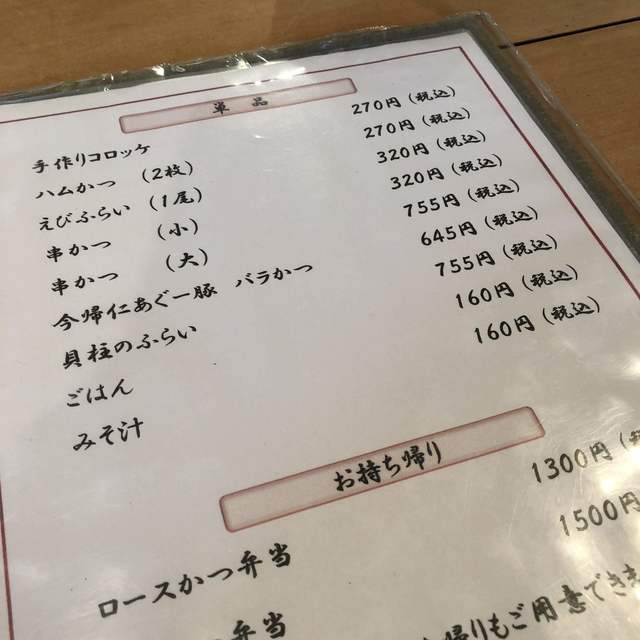 単品
手作りコロッケ 270円(税込)
ハムかつ (2枚) 270円(税込)
えびふらい (1尾) 320円(税込)
串かつ (小) 320円(税込)
串かつ (大) 755円(税込)
今帰仁あぐー豚 バラかつ 645円(税込)
貝柱のふらい 755円(税込)
ごはん 160円(税込)
みそ汁 160円(税込)
お持ち帰り
ロースかつ弁当 1300円(税
弁当 1500円
帰りもご用意できま